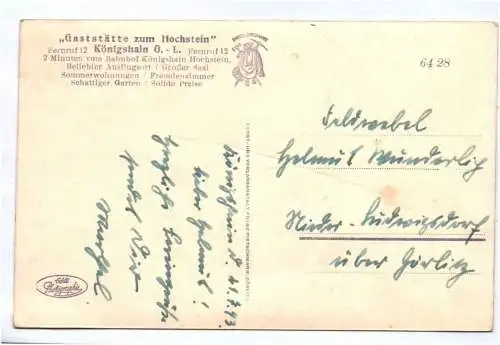 „Gaststätte zum Hochstein"
Fernruf 12 Königshain O.-L. Fernruf 12
2 Minuten vom Bahnhof Königshain Hochstein.
Beliebter Ausflugsort / Großer Saal
Sommerwohnungen / Fremdenzimmer
Schattiger Garten / Solide Preise
64 28
Königshain d. 21.7.43
Lieber Helmut!
Herzliche Feriengrüße
sendet Dir
Feldwebel
Helmut Wunderlich
Nieder-Ludwigsdorf
über Görlitz
Echte
Photographie